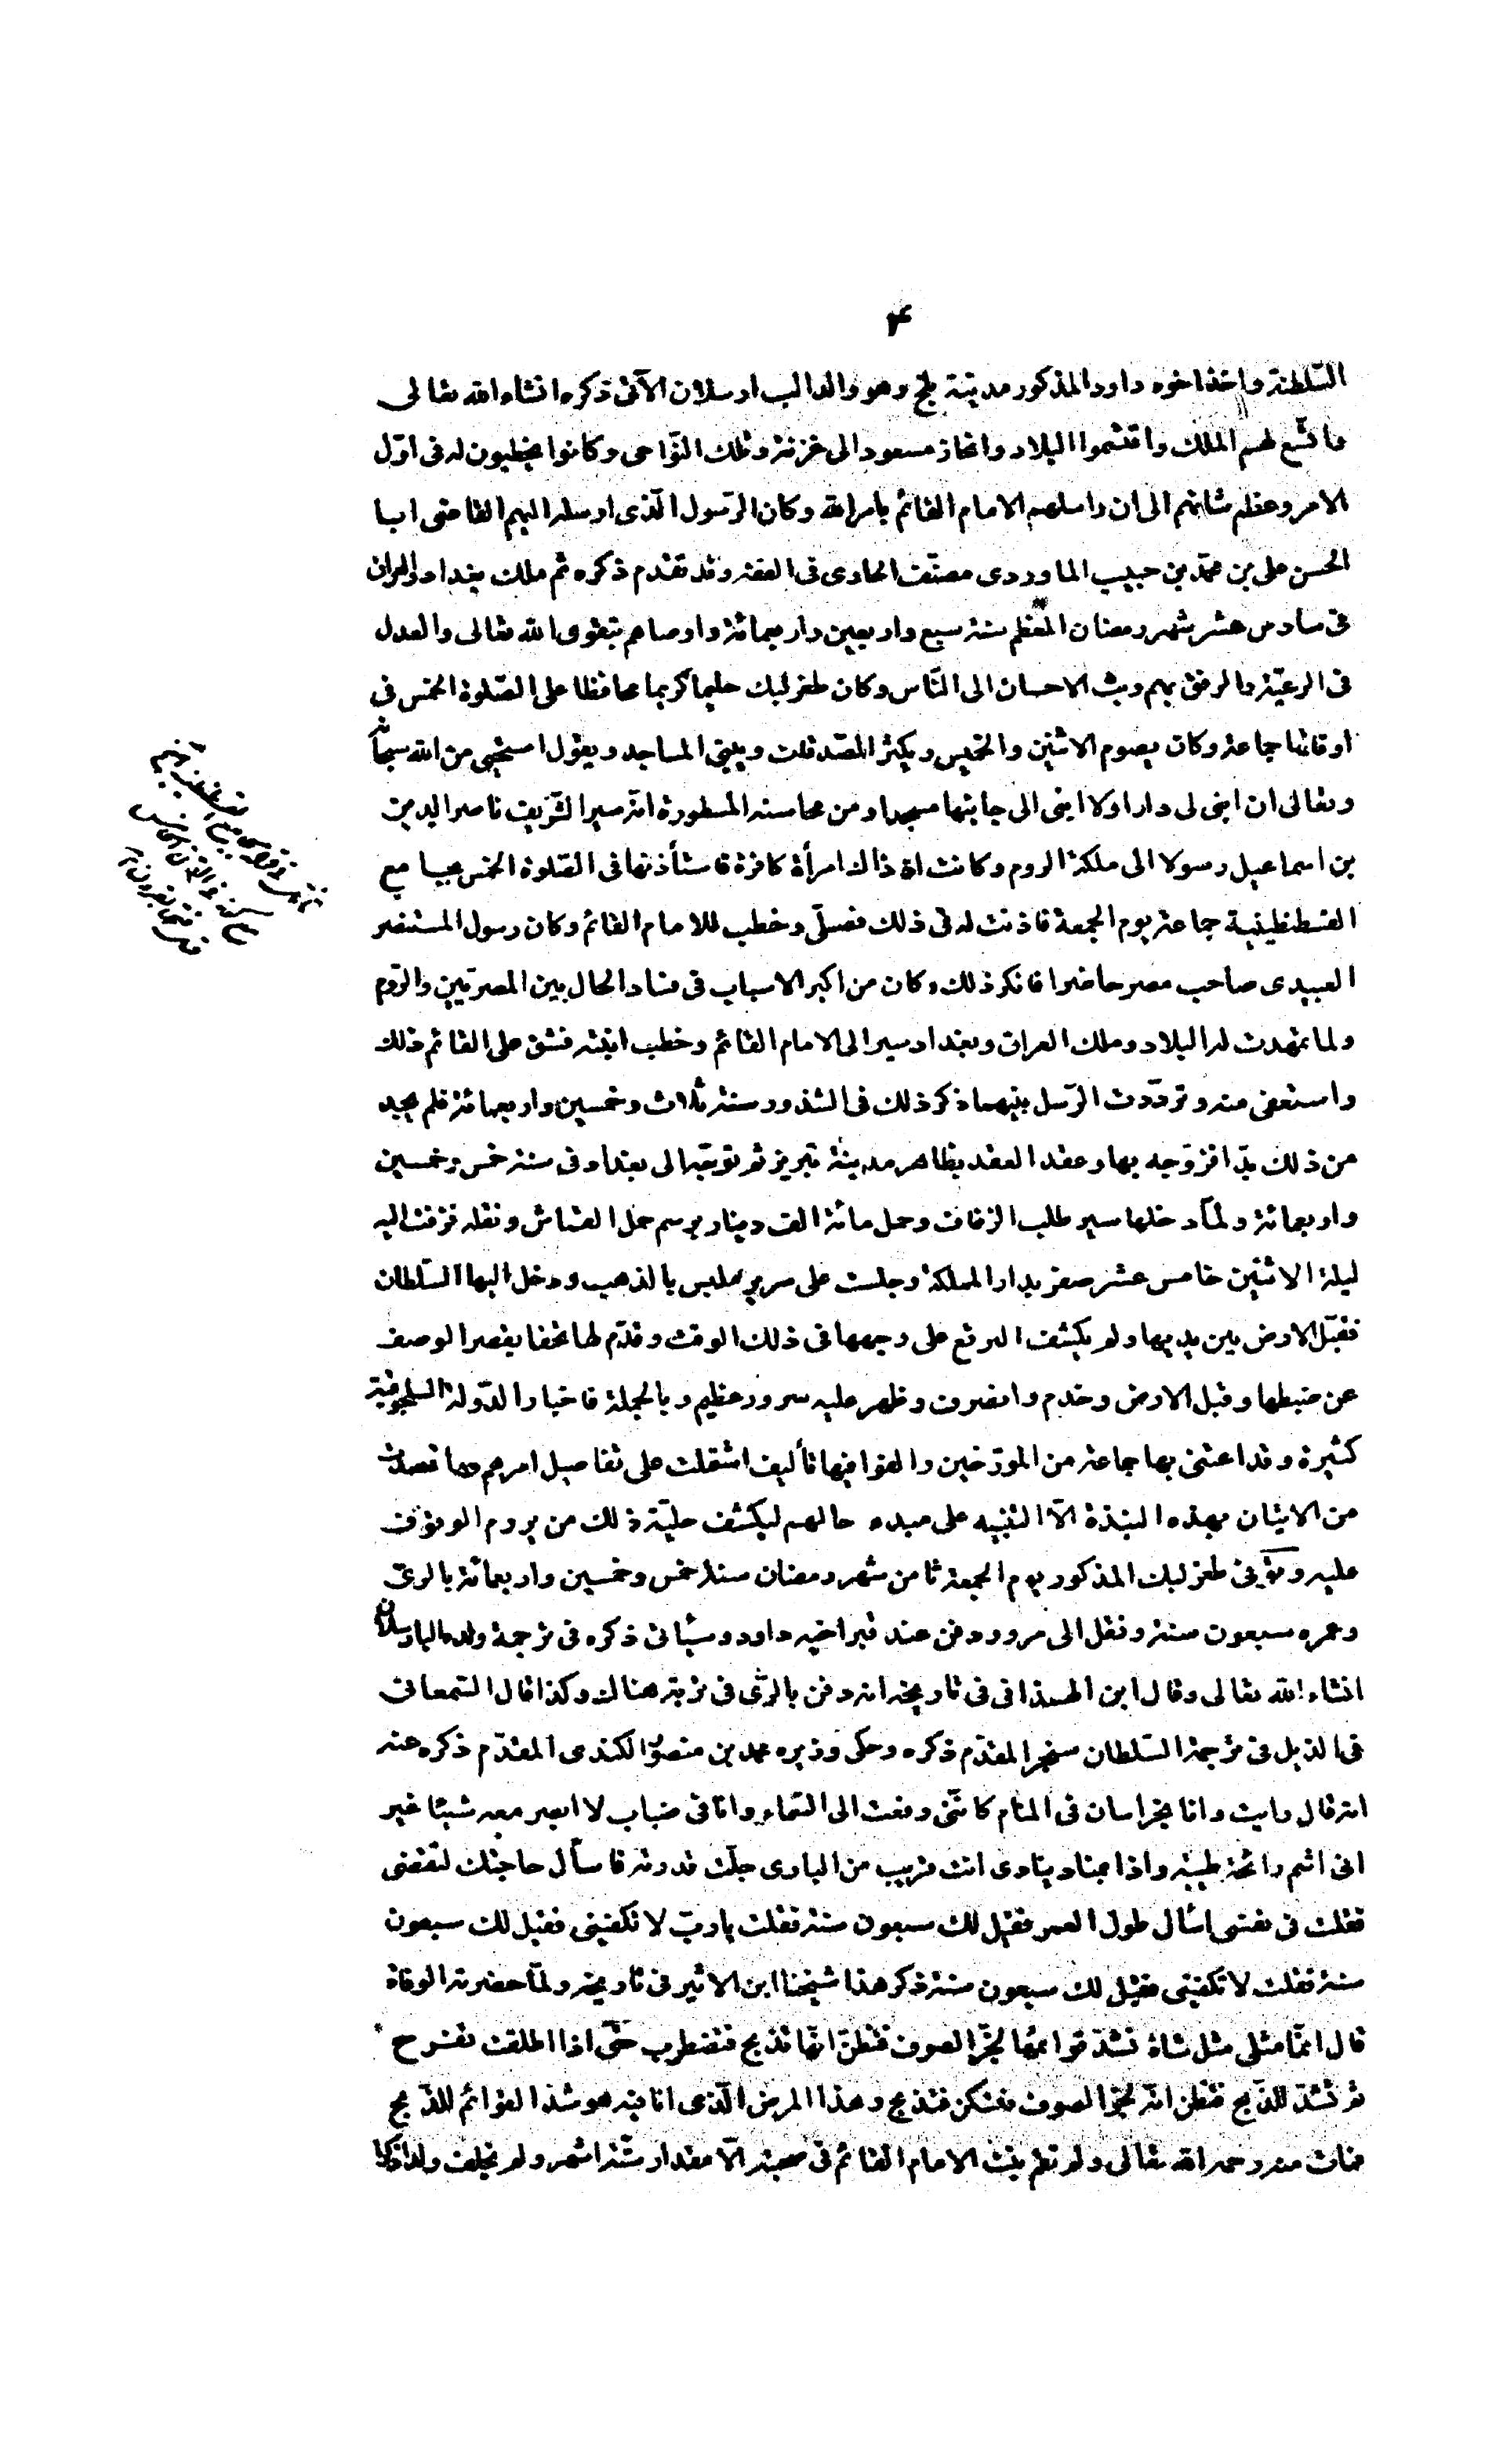 ۴
السّلطنة واخذ اخوه داود المذكور مدينة بلخ وهو والد الب ارسلان الآتى ذكره انشاء الله تعالى
فاتّسع لهم الملك واقتسموا البلاد وانحاز مسعود الى غزنة وتلك النّواحى وكانوا يخطبون له فى اوّل
الامر وعظم شانهم الى ان راسلهم الامام القائم بامر الله وكان الرّسول الّذى ارسله اليهم القاضى ابا
الحسن على بن محمّد بن حبيب الماوردى مصنّف الحاوى فى الفقه وقد تقدم ذكره ثم ملك بغداد والعراق
فى سادس عشر شهر رمضان المعظم سنة سبع واربعين واربعمائة واوصاهم بتقوى الله تعالى والعدل
فى الرعيّة والرفق بهم وبث الاحسان الى النّاس وكان طغرلبك حليما كريما محافظا على الصّلوة الخمس فى
اوقاتها جماعة وكان يصوم الاثنين والخميس ويكثر الصّدقات ويبنى المساجد ويقول استحيى من الله سبحانه
وتعالى ان ابنى لى دارا ولا ابنى الى جانبها مسجدا ومن محاسنه المسطورة انّه سير الشّريف ناصر الدين
بن اسماعيل رسولا الى ملكة الروم وكانت اذ ذاك امرأة كافرة فاستأذنها فى الصّلوة الخمس بجامع
القسطنطينية جماعة يوم الجمعة فاذنت له فى ذلك فصلّى وخطب للامام القائم وكان رسول المستنصر
العبيدى صاحب مصر حاضرا فانكر ذلك وكان من اكبر الاسباب فى فساد الحال بين المصريّين والرّوم
ولما تمهدت له البلاد وملك العراق وبغداد سير الى الامام القائم وخطب ابنته فشق على القائم ذلك
واستعفى منه وتردّدت الرّسل بينهما ذكر ذلك فى الشذور سنة ثلاث وخمسين واربعمائة فلم يجد
من ذلك بدّا فزوّجه بها وعقد العقد بظاهر مدينة تبريز ثم توجّه الى بغداد فى سنة خمس وخمسين
واربعمائة ولمّا دخلها سير طلب الزفاف وحمل مائة الف دينار برسم حمل القماش ونقله فزفت اليه
ليلة الاثنين خامس عشر صفر بدار المملكة وجلست على سرير ملبس بالذهب ودخل اليها السّلطان
فقبّل الارض بين يديها ولم يكشف البرقع على وجهها فى ذلك الوقت وقدّم لها تحفا يقصر الوصف
عن ضبطها وقبل الارض وخدم وانصرف وظهر عليه سرور عظيم وبالجملة فاخبار الدّولة السلجوقيّة
كثيرة وقد اعتنى بها جماعة من المورّخين والفوا فيها تأليف اشتملت على تفاصيل امرهم وما قصدت
من الاتيان بهذه النبذة الّا التنبيه على مبدء حالهم ليكشف جليّة ذلك من يروم الوقوف
عليه وتوفى طغرلبك المذكور يوم الجمعة ثامن شهر رمضان سنة خمس وخمسين واربعمائة بالرى
وعمره سبعون سنة ونقل الى مرو ودفن عند قبر اخيه داود وسيأتى ذكره فى ترجمة ولده الب ارسلان
انشاء الله تعالى وقال ابن الهمذانى فى تاريخه انه دفن بالرّى فى تربة هناك وكذا قال السّمعانى
فى الذيل فى ترجمة السّلطان سنجر المقدّم ذكره وحكى وزيره محمد بن منصور الكندى المقدّم ذكره عنه
انه قال رايت وانا بخراسان فى المنام كانّنى رفعت الى السّماء وانا فى ضباب لا ابصر معه شيئا غير
انى اشم رائحة طيبة واذا بمناد ينادى انت قريب من البارى جلّت قدرته فاسأل حاجتك لتقضى
فقلت فى نفسى اسأل طول العمر فقيل لك سبعون سنة فقلت يا ربّ لا تكفينى فقيل لك سبعون
سنة فقلت لا تكفينى فقيل لك سبعون سنة ذكر هذا شيخنا ابن الاثير فى تاريخه ولمّا حضرته الوفاة
قال انّما مثلى مثل شاة تشدّ قوائمها لجزّ الصوف فتظنّ انّها تذبح فتضطرب حتّى اذا اطلقت تفرح
ثم تشدّ للذّبح فتظن انّه لجزّ الصوف فتسكن فتذبح وهذا المرض الّذى انا فيه هو شدّ القوائم للذّبح
فمات منه رحمه الله تعالى ولم تقم بنت الامام القائم فى صحبته الّا مقدار ستّة اشهر ولم يخلف ولدا ذكرا